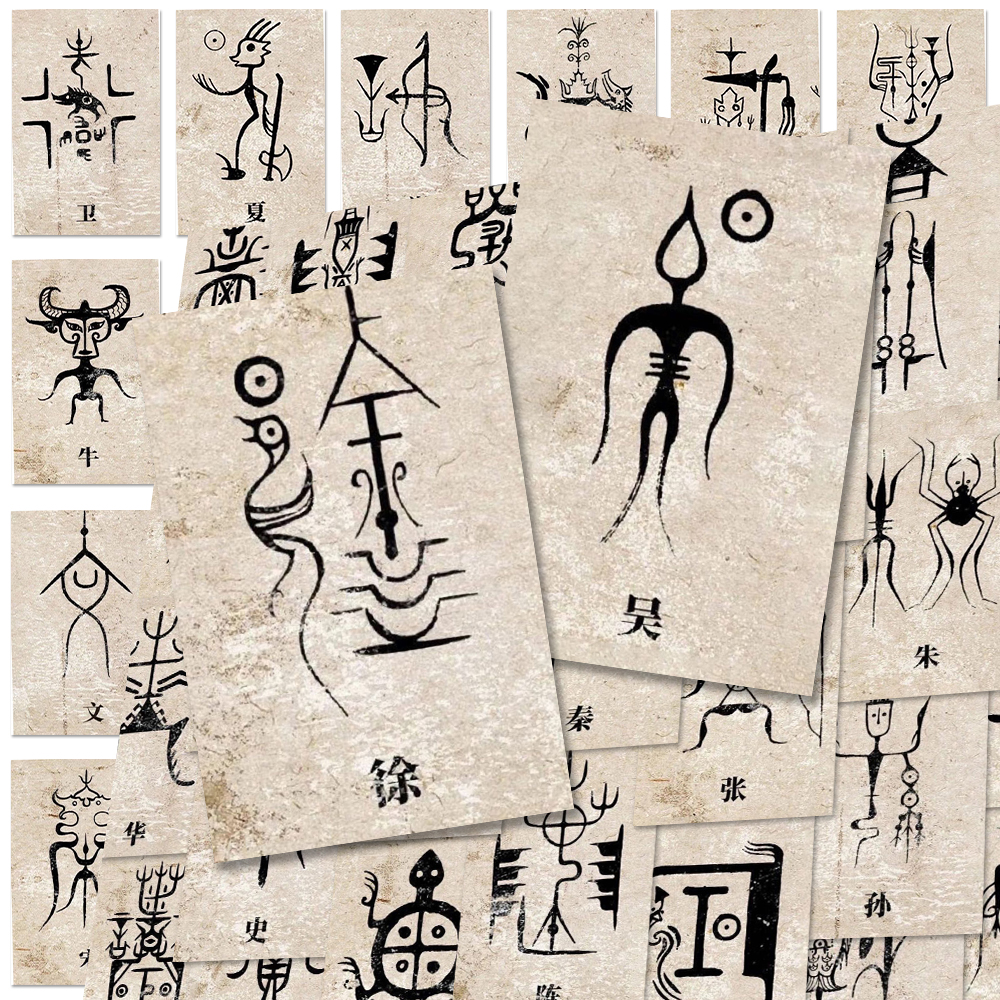 卫
夏
牛
吴
朱
文
秦
徐
张
华
孙
史
陈